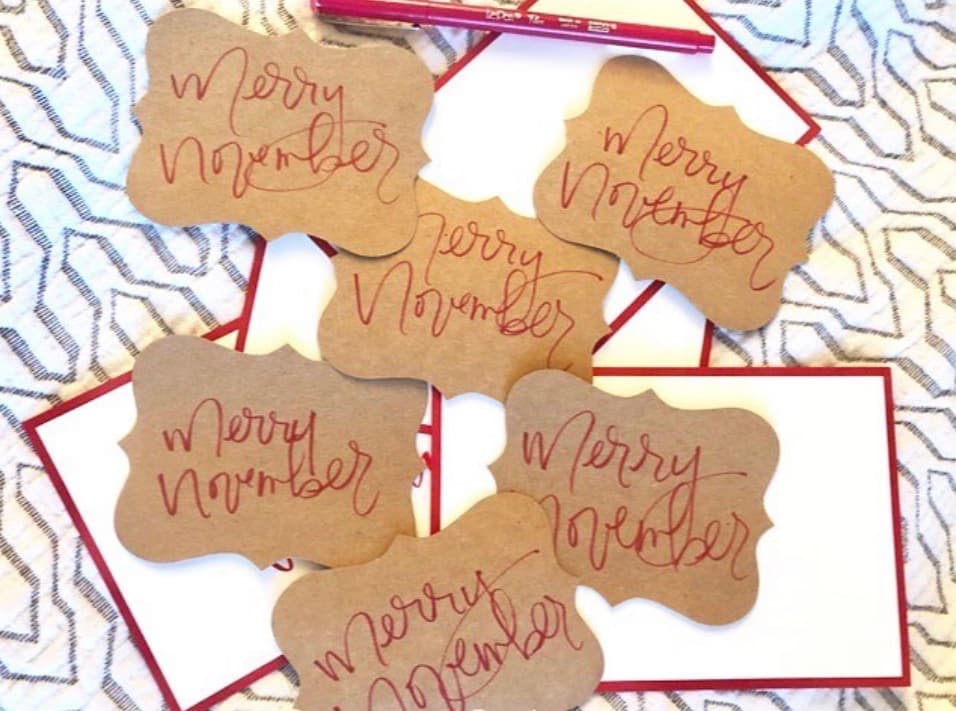 LePen
Merry
November
Merry
November
Merry
November
Merry
November
Merry
November
Merry
November